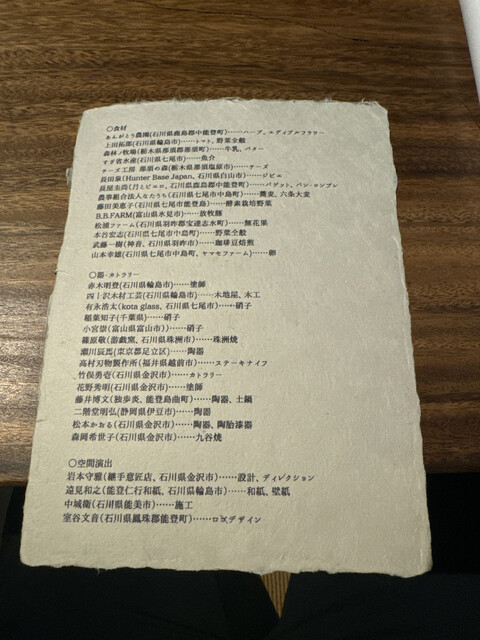 ○食材
あんがとう農園(石川県鹿島郡中能登町)……ハーブ、エディブルフラワー
上田拓郎(石川県輪島市)……トマト、野菜全般
森林ノ牧場(栃木県那須郡那須町)……牛乳、バター
すぎ省水産(石川県七尾市)……魚介
チーズ工房 那須の森(栃木県那須塩原市)……チーズ
長田泉(Hunter Base Japan、石川県白山市)……ジビエ
長屋圭尚(月とピエロ、石川県鹿島郡中能登町)……バゲット、パン・コンプレ
農事組合法人なたうち(石川県七尾市中島町)……蕎麦、六条大麦
藤田美恵子(石川県七尾市能登島)……酵素栽培野菜
B.B.FARM(富山県氷見市)……放牧豚
松浦ファーム(石川県羽咋郡宝達志水町)……無花果
本谷宏志(石川県七尾市中島町)……野菜全般
武藤一樹(神音、石川県羽咋市)……珈琲豆焙煎
山本幸雄(石川県七尾市中島町、ヤマセファーム)……卵
○器・カトラリー
赤木明登(石川県輪島市)……塗師
四十沢木材工芸(石川県輪島市)……木地屋、木工
有永浩太(kota glass、石川県七尾市)……硝子
稲葉知子(千葉県)……硝子
小宮崇(富山県富山市))……硝子
篠原敬(游戯窯、石川県珠洲市)……珠洲焼
瀬川辰馬(東京都足立区)……陶器
高村刃物製作所(福井県越前市)……ステーキナイフ
竹俣勇壱(石川県金沢市)……カトラリー
花野秀明(石川県金沢市)……塗師
藤井博文(独歩炎、能登島曲町)……陶器、土鍋
二階堂明弘(静岡県伊豆市)……陶器
松本かおる(石川県金沢市)……陶器、陶胎漆器
森岡希世子(石川県金沢市)……九谷焼
○空間演出
岩本守雅(継手意匠店、石川県金沢市)……設計、ディレクション
遠見和之(能登仁行和紙、石川県輪島市)……和紙、壁紙
中城衛(石川県能美市)……施工
室谷文音(石川県鳳珠郡能登町)……ロゴデザイン